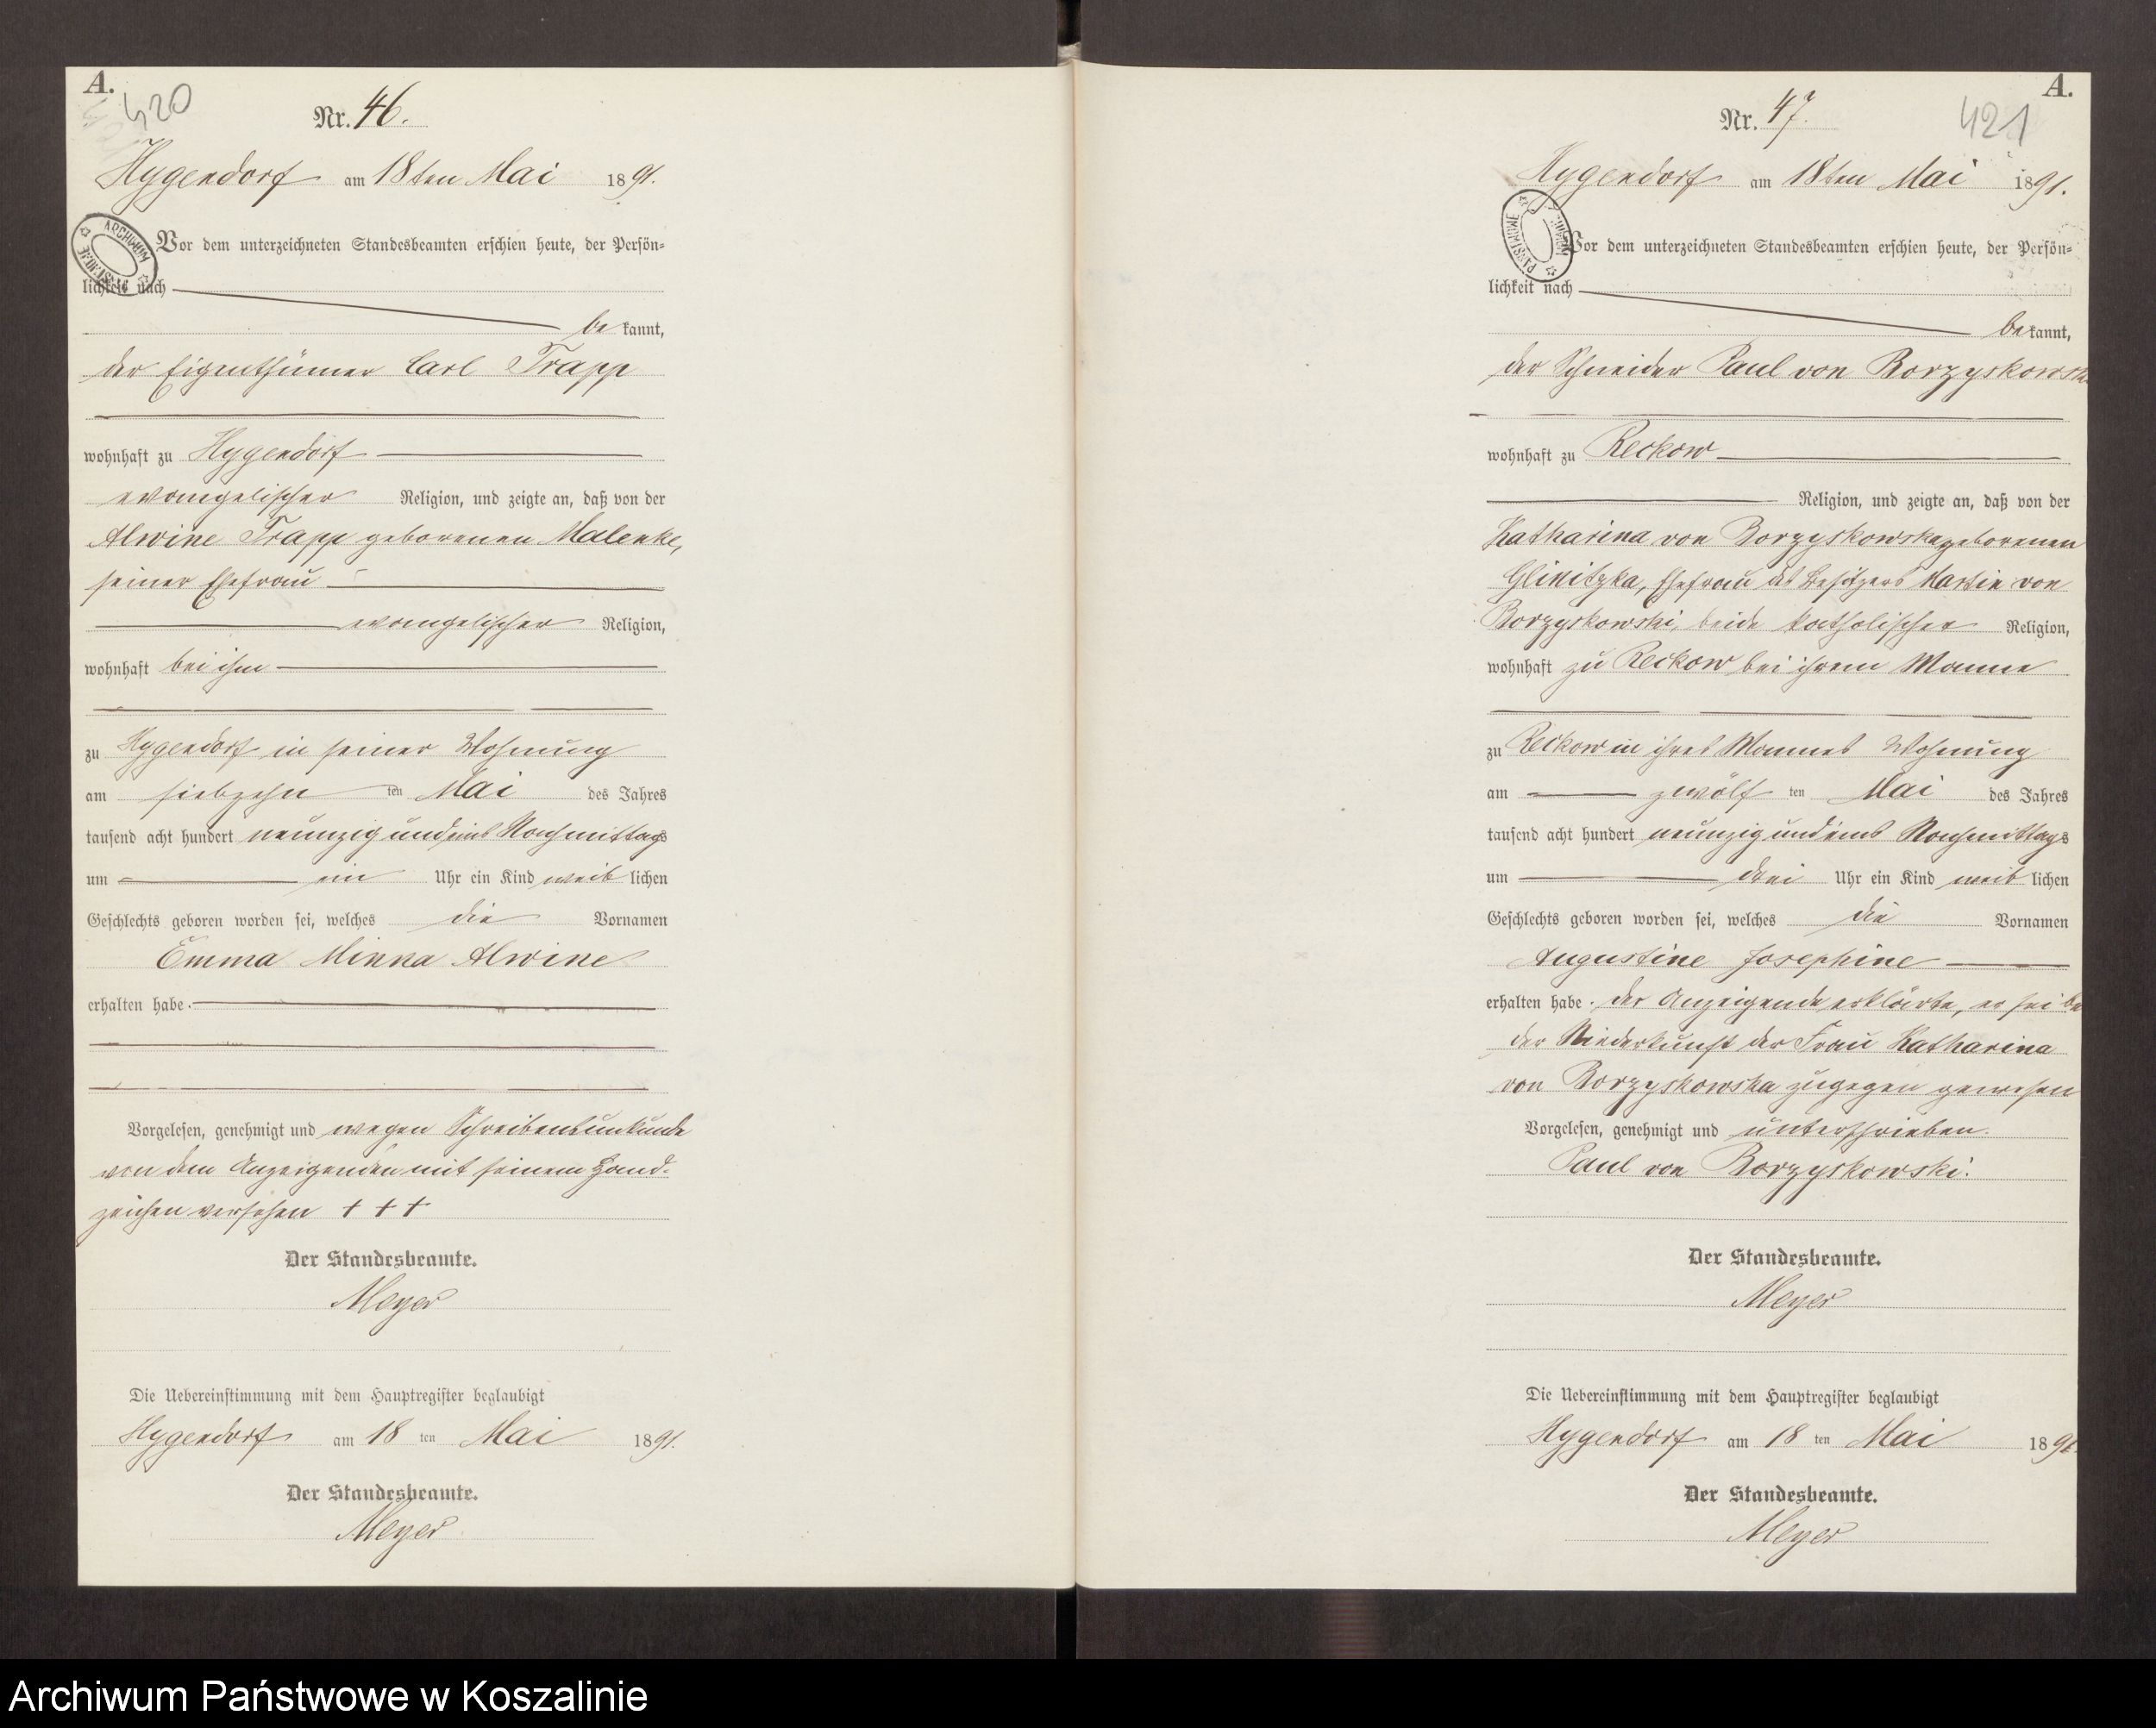 A.
420
Nr. 46.
Hygendorf am 18ten Mai 1891.
Vor dem unterzeichneten Standesbeamten erschien heute, der Persön-
lichkeit nach
bekannt,
der Eigenthümer Carl Trapp
wohnhaft zu Hygendorf
evangelischer Religion, und zeigte an, daß von der
Alwine Trapp geborenen Malenke,
seiner Ehefrau
evangelischer Religion,
wohnhaft bei ihm
zu Hygendorf in seiner Wohnung
am siebzehn ten Mai des Jahres
tausend acht hundert neunzig und eins Nachmittags
um ein Uhr ein Kind weiblichen
Geschlechts geboren worden sei, welches die Vornamen
Emma Minna Alwine
erhalten habe.
Vorgelesen, genehmigt und wegen Schreibensunkunde
von dem Anzeigenden mit seinem Hand-
zeichen versehen + + +
Der Standesbeamte.
Meyer
Die Uebereinstimmung mit dem Hauptregister beglaubigt
Hygendorf am 18 ten Mai 1891.
Der Standesbeamte.
Meyer
A.
421
Nr. 47.
Hygendorf am 18ten Mai 1891.
Vor dem unterzeichneten Standesbeamten erschien heute, der Persön-
lichkeit nach
bekannt,
der Schneider Paul von Borzyskowski
wohnhaft zu Reckow
Religion, und zeigte an, daß von der
Katharina von Borzyskowska geborenen
Glinitzka, Ehefrau des Besitzers Martin von
Borzyskowski, beide katholischer Religion,
wohnhaft zu Reckow bei ihrem Manne
zu Reckow in ihres Mannes Wohnung
am zwölf ten Mai des Jahres
tausend acht hundert neunzig und eins Nachmittags
um drei Uhr ein Kind weiblichen
Geschlechts geboren worden sei, welches die Vornamen
Augustine Josephine
erhalten habe. der Anzeigende erklärte, er sei bei
der Niederkunft der Frau Katharina
von Borzyskowska zugegen gewesen
Vorgelesen, genehmigt und unterschrieben.
Paul von Borzyskowski.
Der Standesbeamte.
Meyer
Die Uebereinstimmung mit dem Hauptregister beglaubigt
Hygendorf am 18 ten Mai 1891.
Der Standesbeamte.
Meyer
Archiwum Państwowe w Koszalinie